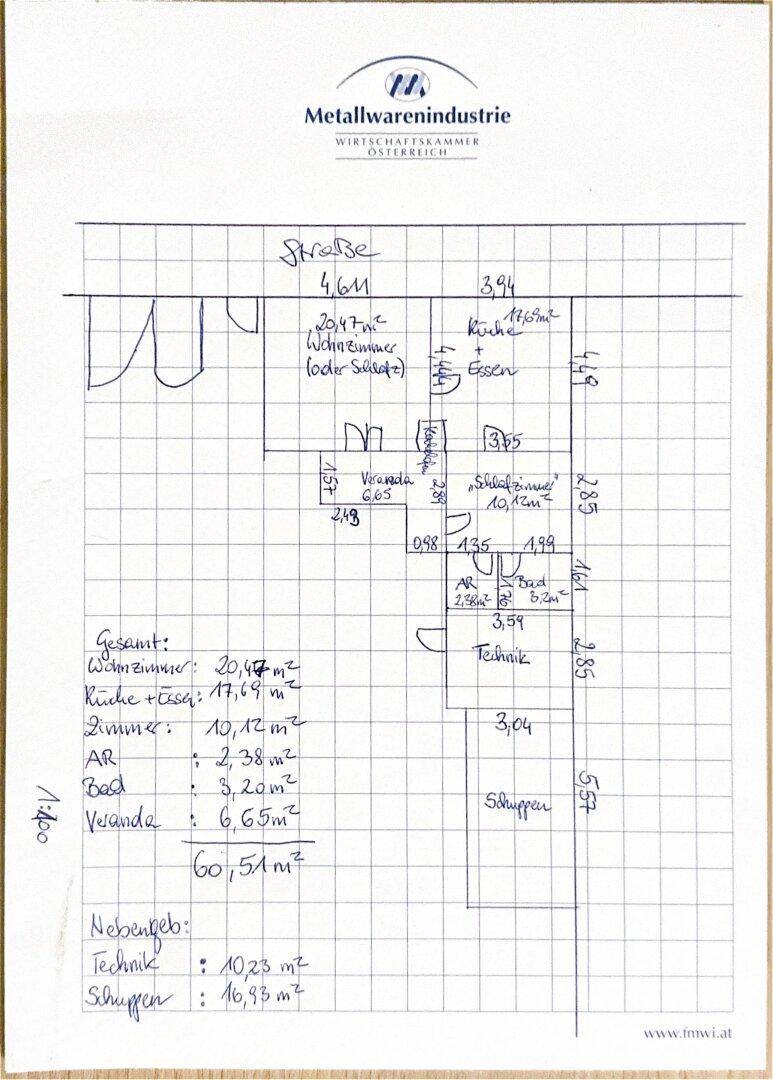 Metallwarenindustrie
WIRTSCHAFTSKAMMER
ÖSTERREICH
Straße
4,611
3,94
20,47 m²
Wohnzimmer
(oder Schlafz)
17,69 m²
Küche
+
Essen
4,444
4,49
3,55
1,57
Veranda
6,65
2,89
"Schlafzimmer"
10,12 m²
2,85
2,43
0,98
1,35
1,99
1,61
AR
2,38 m²
1,76
Bad
3,2 m²
3,59
Technik
2,85
3,04
Schuppen
5,57
Gesamt:
Wohnzimmer: 20,47 m²
Küche + Essen: 17,69 m²
Zimmer: 10,12 m²
AR : 2,38 m²
Bad : 3,20 m²
Veranda : 6,65 m²
60,51 m²
1:100
Nebengeb:
Technik : 10,23 m²
Schuppen : 16,93 m²
www.fmwi.at